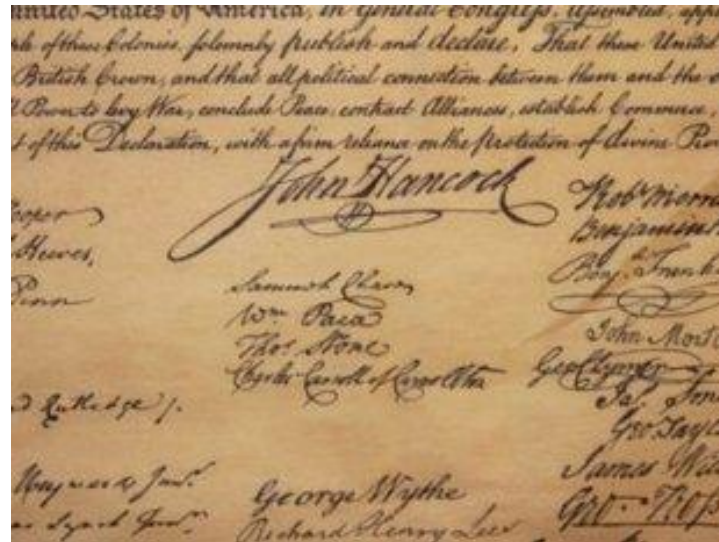 United States of America, in General Congress, Assembled,
of these Colonies, solemnly publish and declare, That these United
British Crown, and that all political connection between them and the
Power to levy War, conclude Peace, contract Alliances, establish Commerce,
of this Declaration, with a firm reliance on the protection of divine
John Hancock
Hewes,
Penn
Samuel Chase
Wm Paca
Thos Stone
Charles Carroll of Carrollton
Rutledge
Heyward Junr
Lynch Junr
George Wythe
Richard Henry Lee
Robt Morris
Benjamin
Benj
John
Geo Clymer
Jas
Geo
James
Geo. Ross